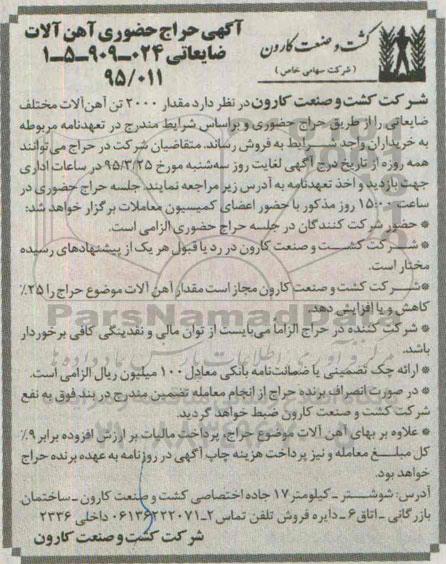 کشت و صنعت کارون
(شرکت سهامی خاص)
آگهی حراج حضوری آهن آلات
ضایعاتی ۰۲۴-۹۰۹-۵-۱
۹۵/۰۱۱
شرکت کشت و صنعت کارون در نظر دارد مقدار ۲۰۰۰ تن آهن آلات مختلف
ضایعاتی را از طریق حراج حضوری و براساس شرایط مندرج در تعهدنامه مربوطه
به خریداران واجد شرایط به فروش رساند. متقاضیان شرکت در حراج می‌توانند
همه روزه از تاریخ درج آگهی لغایت روز سه‌شنبه مورخ ۹۵/۳/۲۵ در ساعات اداری
جهت بازدید و اخذ تعهدنامه به آدرس زیر مراجعه نمایند. جلسه حراج حضوری در
ساعت ۱۵:۰۰ روز مذکور با حضور اعضای کمیسیون معاملات برگزار خواهد شد:
* حضور شرکت کنندگان در جلسه حراج حضوری الزامی است.
* شرکت کشت و صنعت کارون در رد یا قبول هر یک از پیشنهادهای رسیده
مختار است.
* شرکت کشت و صنعت کارون مجاز است مقدار آهن آلات موضوع حراج را ۲۵٪
کاهش و یا افزایش دهد.
* شرکت کننده در حراج الزاما می‌بایست از توان مالی و نقدینگی کافی برخوردار
باشد.
* ارائه چک تضمینی یا ضمانت‌نامه بانکی معادل ۱۰۰ میلیون ریال الزامی است.
* در صورت انصراف برنده حراج از انجام معامله تضمین مندرج در بند فوق به نفع
شرکت کشت و صنعت کارون ضبط خواهد گردید.
* علاوه بر بهای آهن آلات موضوع حراج، پرداخت مالیات بر ارزش افزوده برابر ۹٪
کل مبلغ معامله و نیز پرداخت هزینه چاپ آگهی در روزنامه به عهده برنده حراج
خواهد بود.
آدرس: شوشتر - کیلومتر ۱۷ جاده اختصاصی کشت و صنعت کارون - ساختمان
بازرگانی - اتاق ۶ - دایره فروش تلفن تماس ۲-۰۶۱۳۶۲۲۲۰۷۱ داخلی ۲۳۳۶
شرکت کشت و صنعت کارون
ParsNamadData